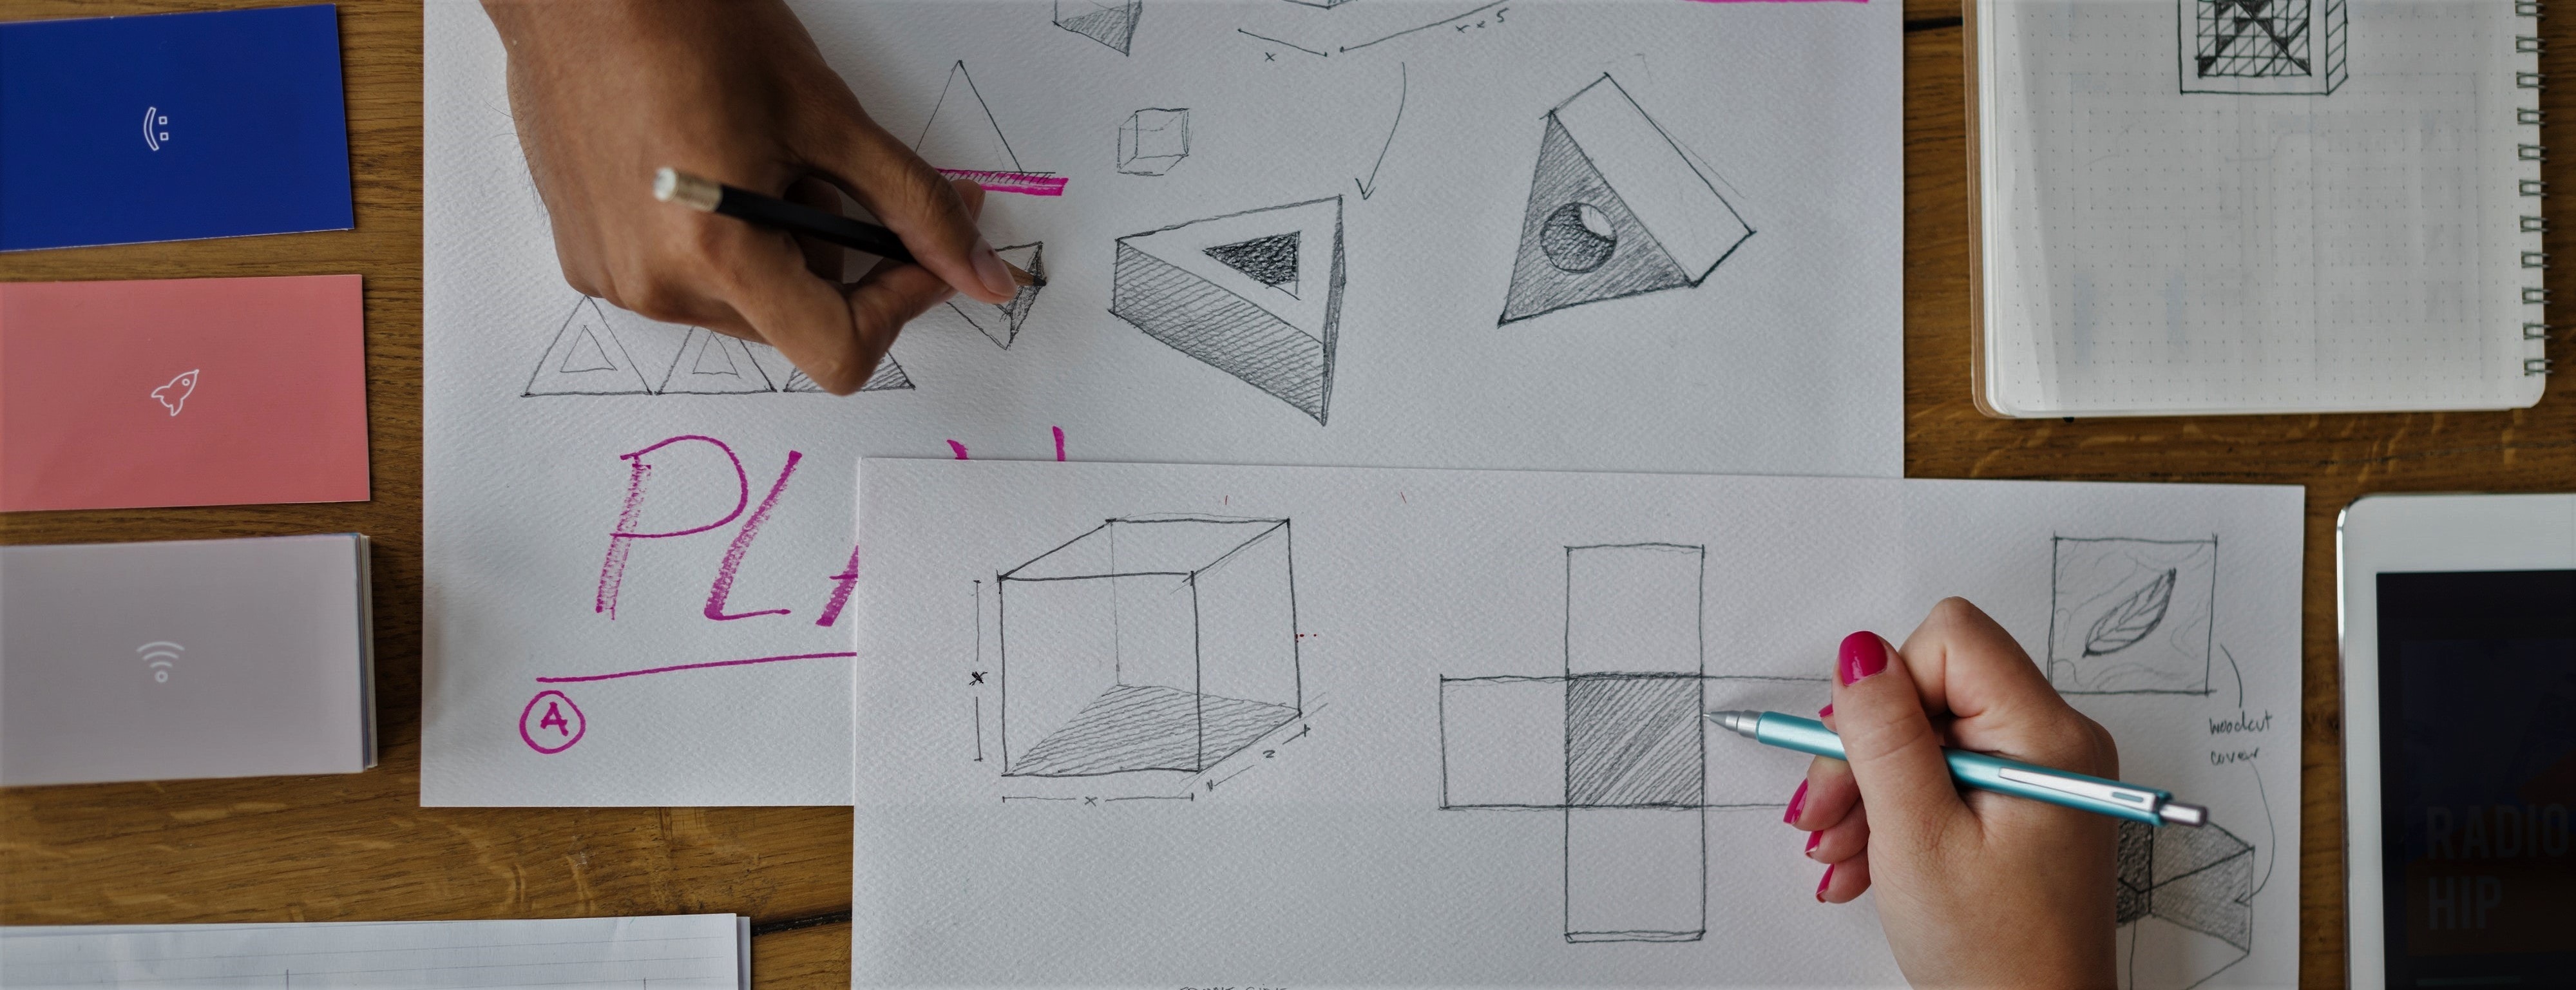 x
x x 5
PLA
A
x
x
2
woodcut
cover
RADIO
HIP